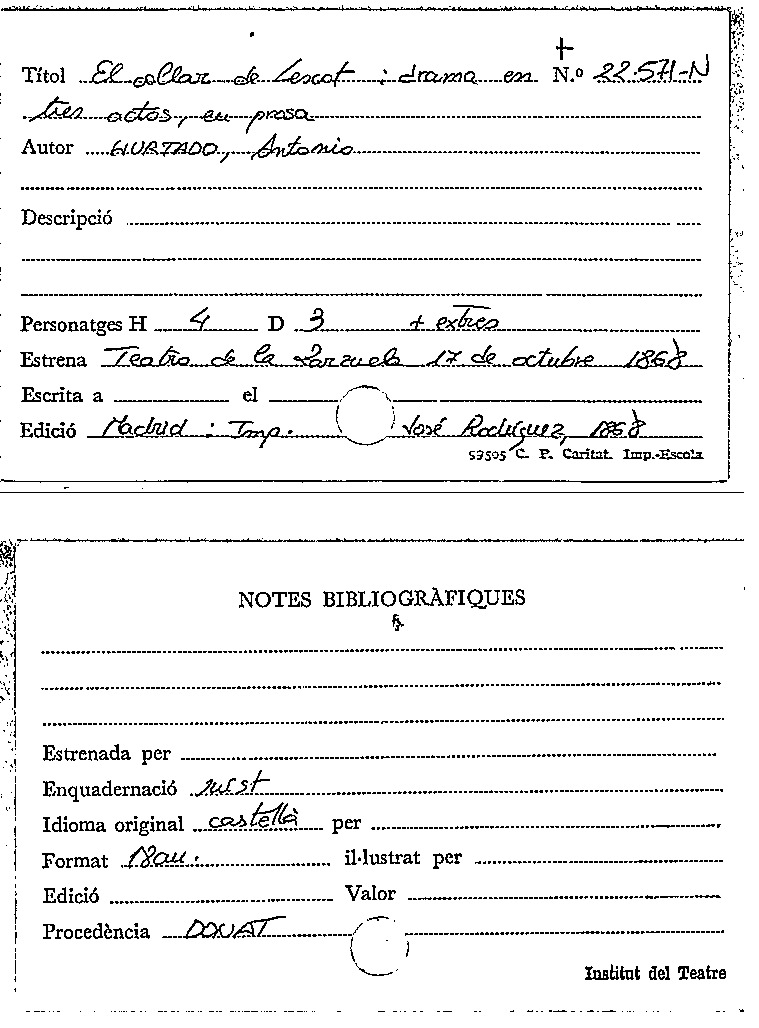 Títol El collar de Lescot : drama en N.º 22.571-N
tres actos, en prosa
Autor HURTADO, Antonio
Descripció
Personatges H 4 D 3 + extres
Estrena Teatro de la Zarzuela 17 de octubre 1868
Escrita a el
Edició Madrid : Imp. José Rodríguez, 1868
53505 C. P. Caritat. Imp.-Escola
NOTES BIBLIOGRÀFIQUES
Estrenada per
Enquadernació rust
Idioma original castellà per
Format 18au. il·lustrat per
Edició Valor
Procedència DONAT
Institut del Teatre